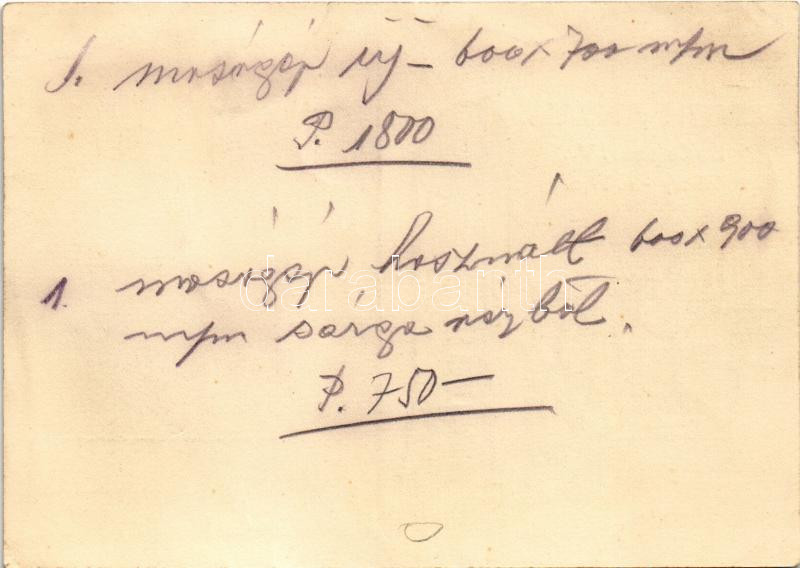 1. mosógép új – 600 x 700 m/m
P. 1800
1. mosógép használt 600 x 900
m/m sárga rézből.
P. 750–
darabanth